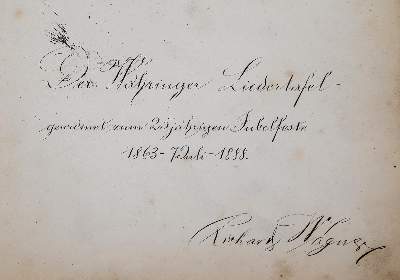 Der Währinger Liedertafel -
gewidmet zum 25jährigen Jubelfeste
1863 - 7 Juli - 1888.
Richard Wagner